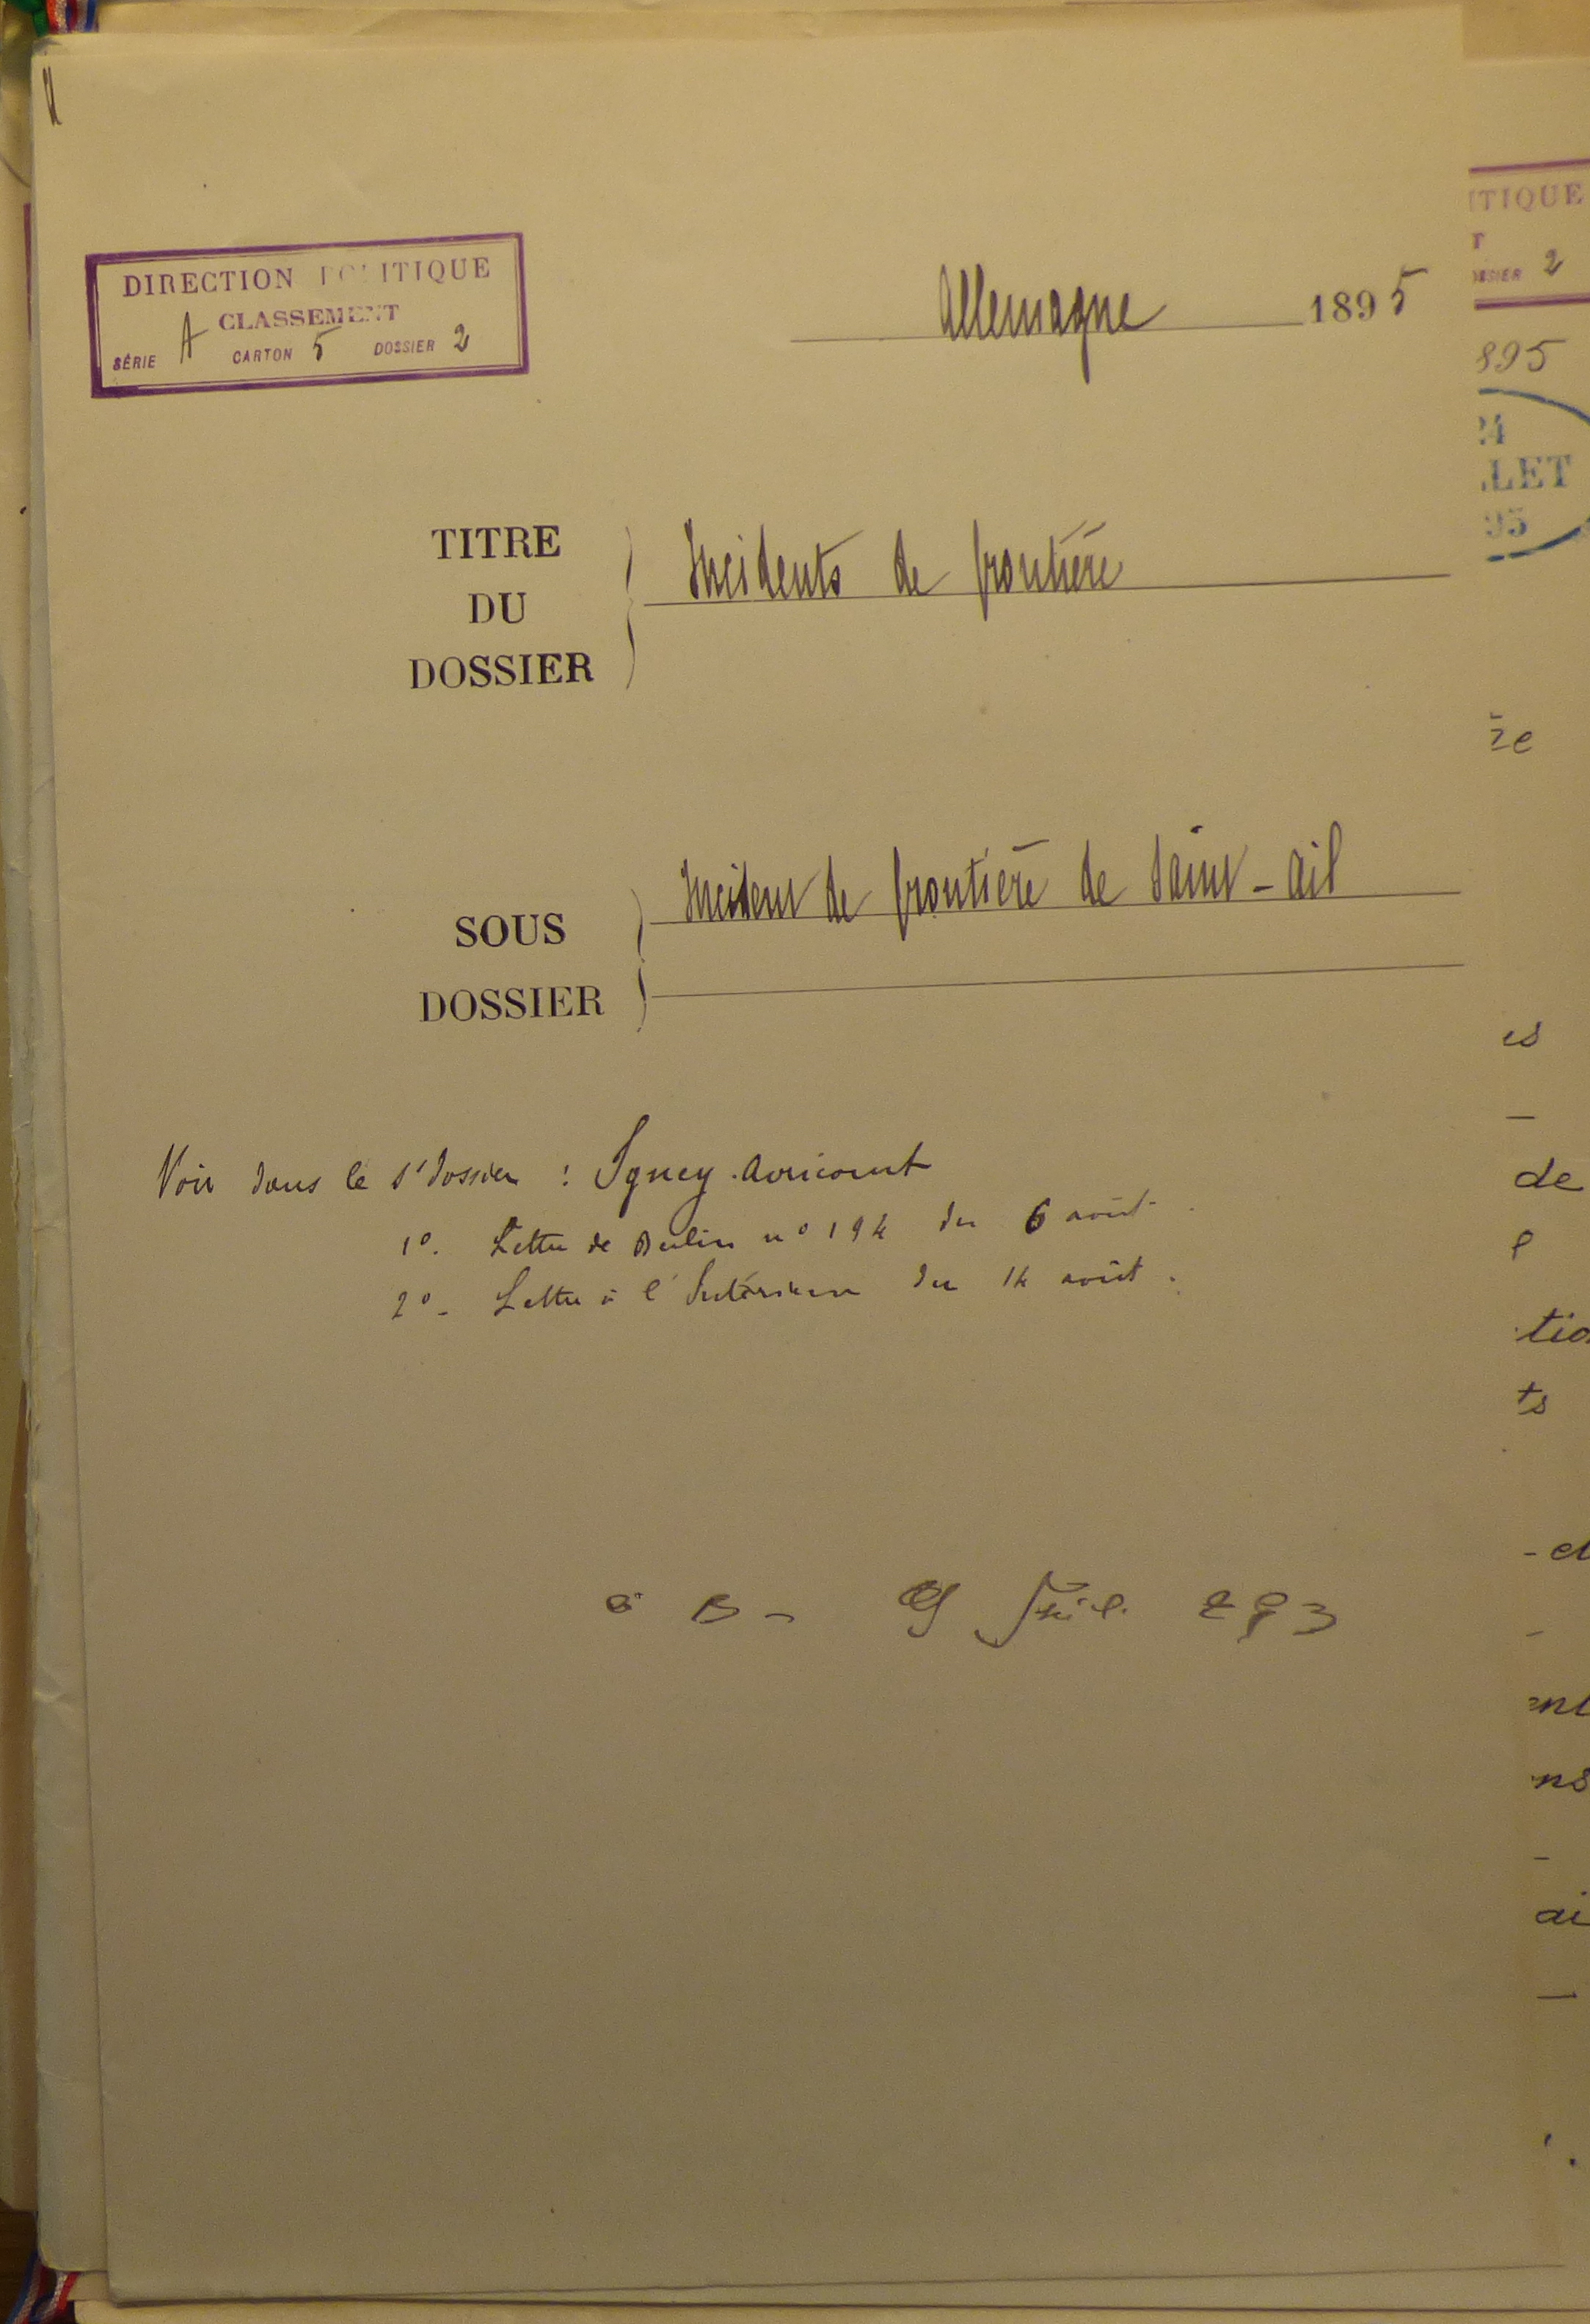 DIRECTION POLITIQUE
CLASSEMENT
SÉRIE A CARTON 5 DOSSIER 2
Allemagne 1895
TITRE
DU
DOSSIER
Incidents de frontière
SOUS
DOSSIER
Incident de frontière de Saint-Ail
Voir dans le s/dossier : Igney-Avricourt
1°. Lettre de Berlin n° 194 du 6 août.
2°- Lettre à l'Intérieur du 14 août.
ITIQUE
T
DOSSIER 2
895
24
LLET
95
es
de
tio
ts